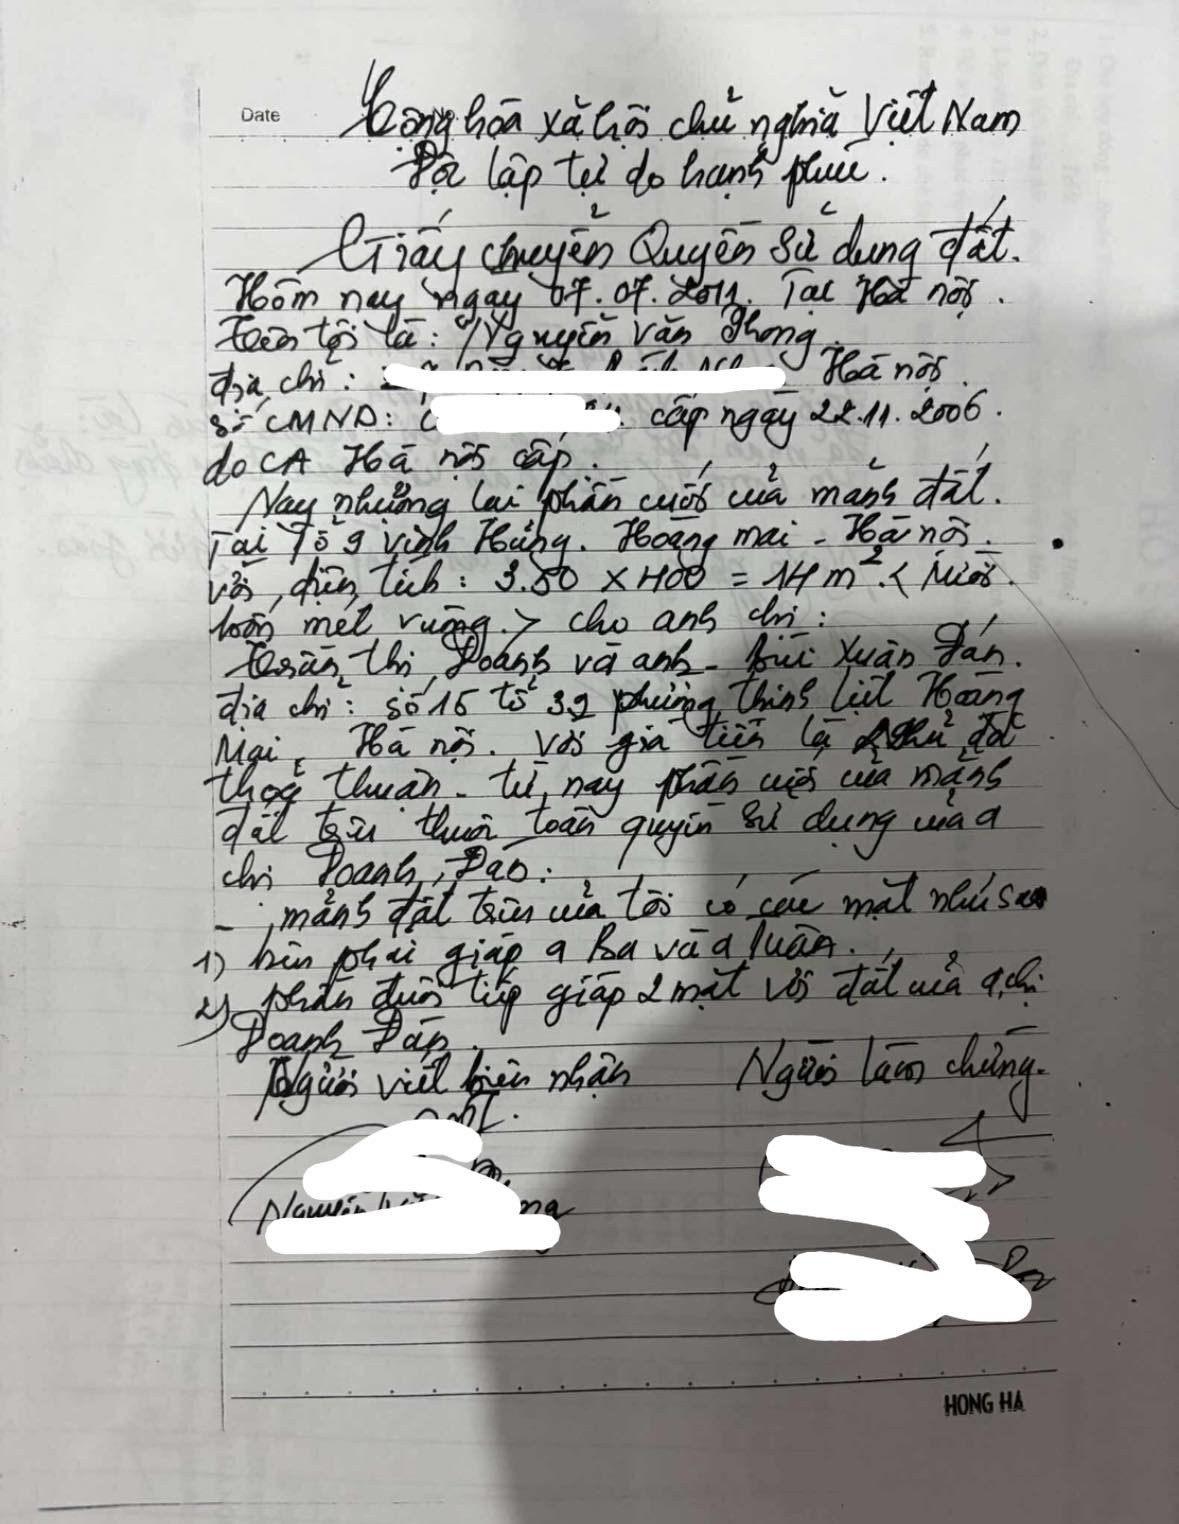 Date
Cộng hòa xã hội chủ nghĩa Việt Nam
Độc lập tự do hạnh phúc.
Giấy chuyển Quyền Sử dụng đất.
Hôm nay ngày 07.07.2011. Tại Hà nội.
tên tôi là: Nguyễn Văn Phong
địa chỉ: Hà nội.
số CMND: cấp ngày 22.11.2006.
do CA Hà nội cấp.
Nay nhượng lại phần cuối của mảnh đất.
Tại Tổ 9 Vĩnh Hưng. Hoàng mai - Hà nội.
với diện tích: 3.50 x 400 = 14 m². < Mười
bốn mét vuông. > cho anh chị:
trần thị Doanh và anh - Bùi Xuân Đán.
địa chỉ: số 15 tổ 39 phường thịnh liệt Hoàng
Mai. Hà nội. Với giá tiền là như đã
thoả thuận - từ nay phần cuối của mảnh
đất trên thuộc toàn quyền sử dụng của a
chị Doanh, Đán.
- mảnh đất trên của tôi có các mặt như sau
1) bên phải giáp a Ba và a Luân.
2) phần đuôi tiếp giáp 2 mặt với đất của a, chị
Doanh Đán.
Người viết biên nhận Người làm chứng.
HONG HA